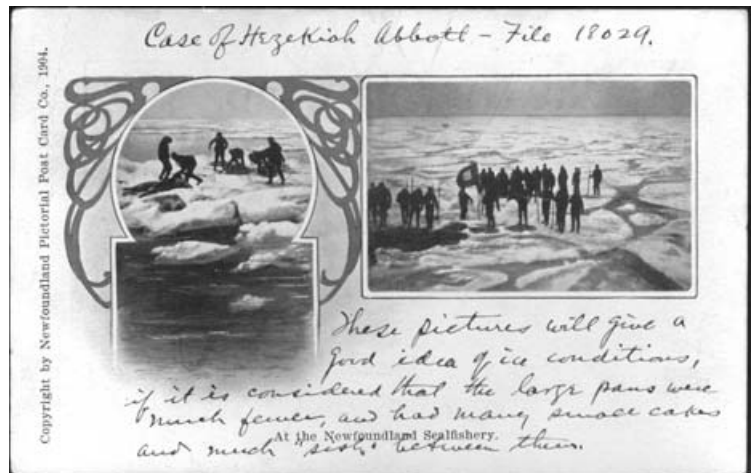 Case of Hezekiah Abbott - File 18029.
Copyright by Newfoundland Pictorial Post Card Co., 1904.
These pictures will give a
good idea of ice conditions,
if it is considered that the large pans were
much fewer, and had many small cakes
At the Newfoundland Sealfishery.
and much "sish" between them.